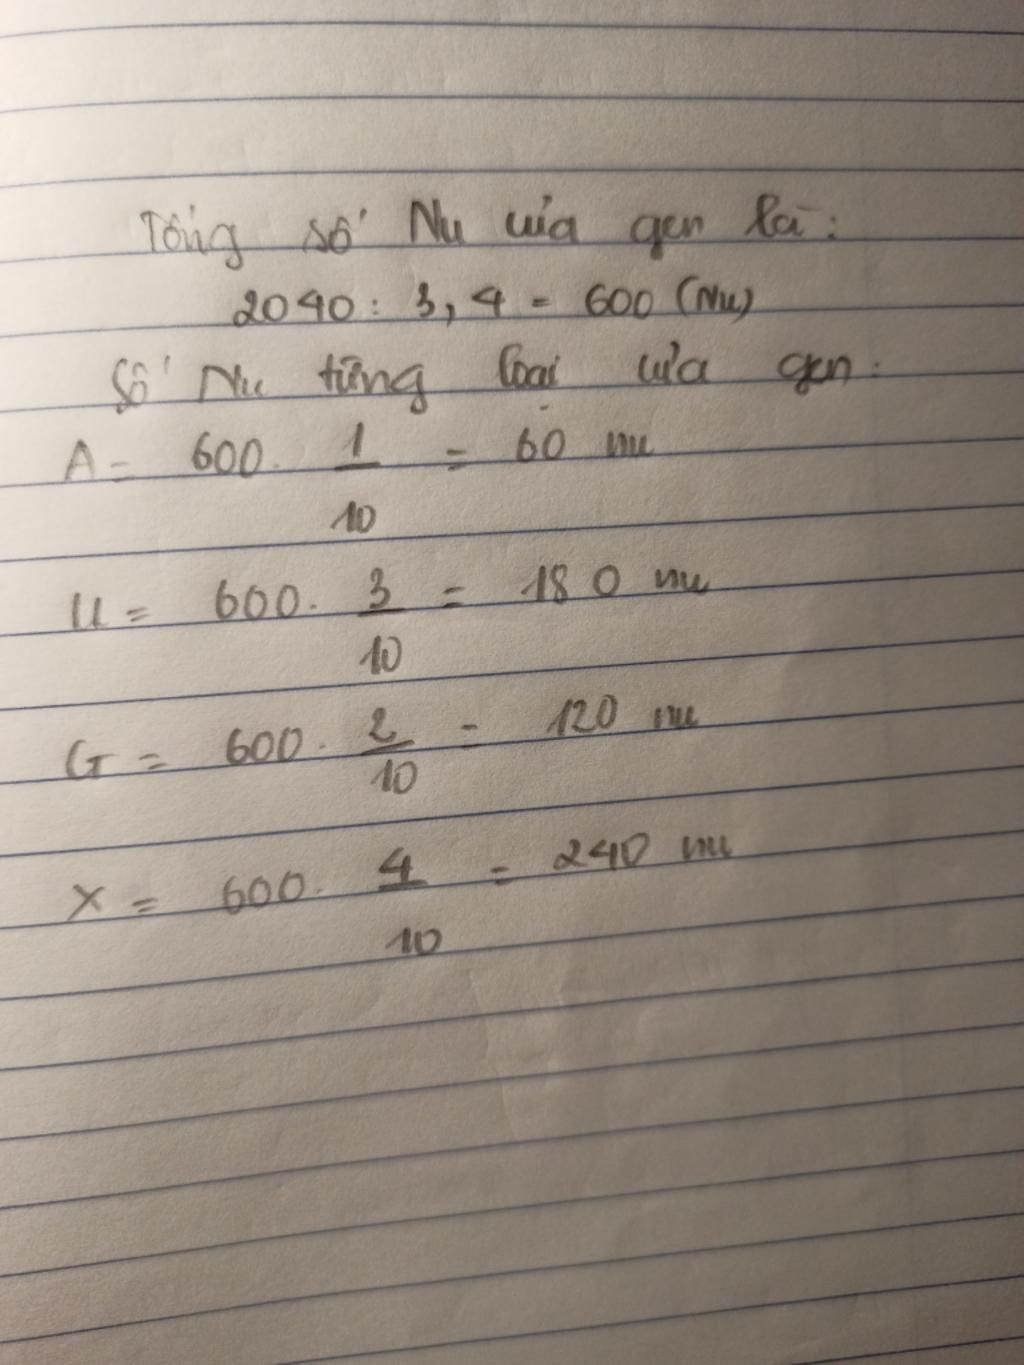 Tổng số Nu của gen là:
2040 : 3,4 = 600 (Nu)
Số Nu từng loại của gen:
A = 600. 1/10 = 60 nu
U = 600. 3/10 = 180 nu
G = 600. 2/10 = 120 nu
X = 600. 4/10 = 240 nu